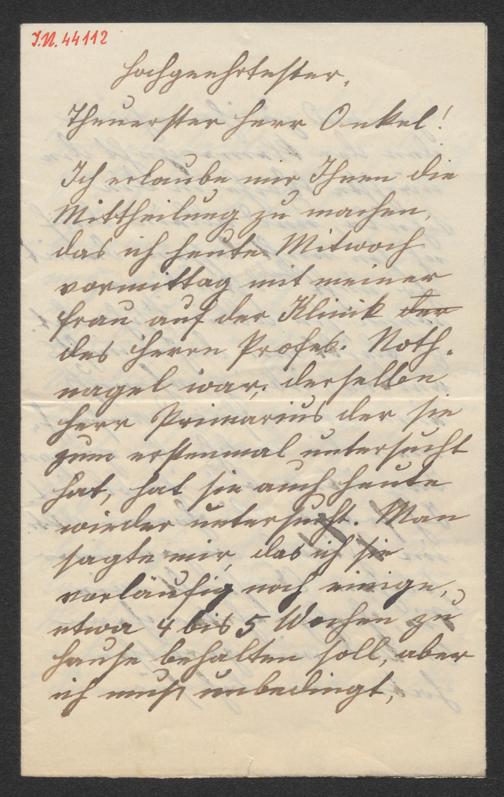 I.N. 44112
Hochgeehrtester,
Theuerster Herr Onkel!
Ich erlaube mir Ihnen die
Mittheilung zu machen,
das ich heute Mitwoch
vormittag mit meiner
Frau auf der Klinik der
des Herrn Profes. Noth-
nagel war, derselbe
Herr Primarius der sie
zum erstenmal untersucht
hat, hat sie auch heute
wieder untersucht. Man
sagte mir, das ich sie
vorläufig noch einige,
etwa 4 bis 5 Wochen zu
hause behalten soll, aber
ich muß unbedingt,